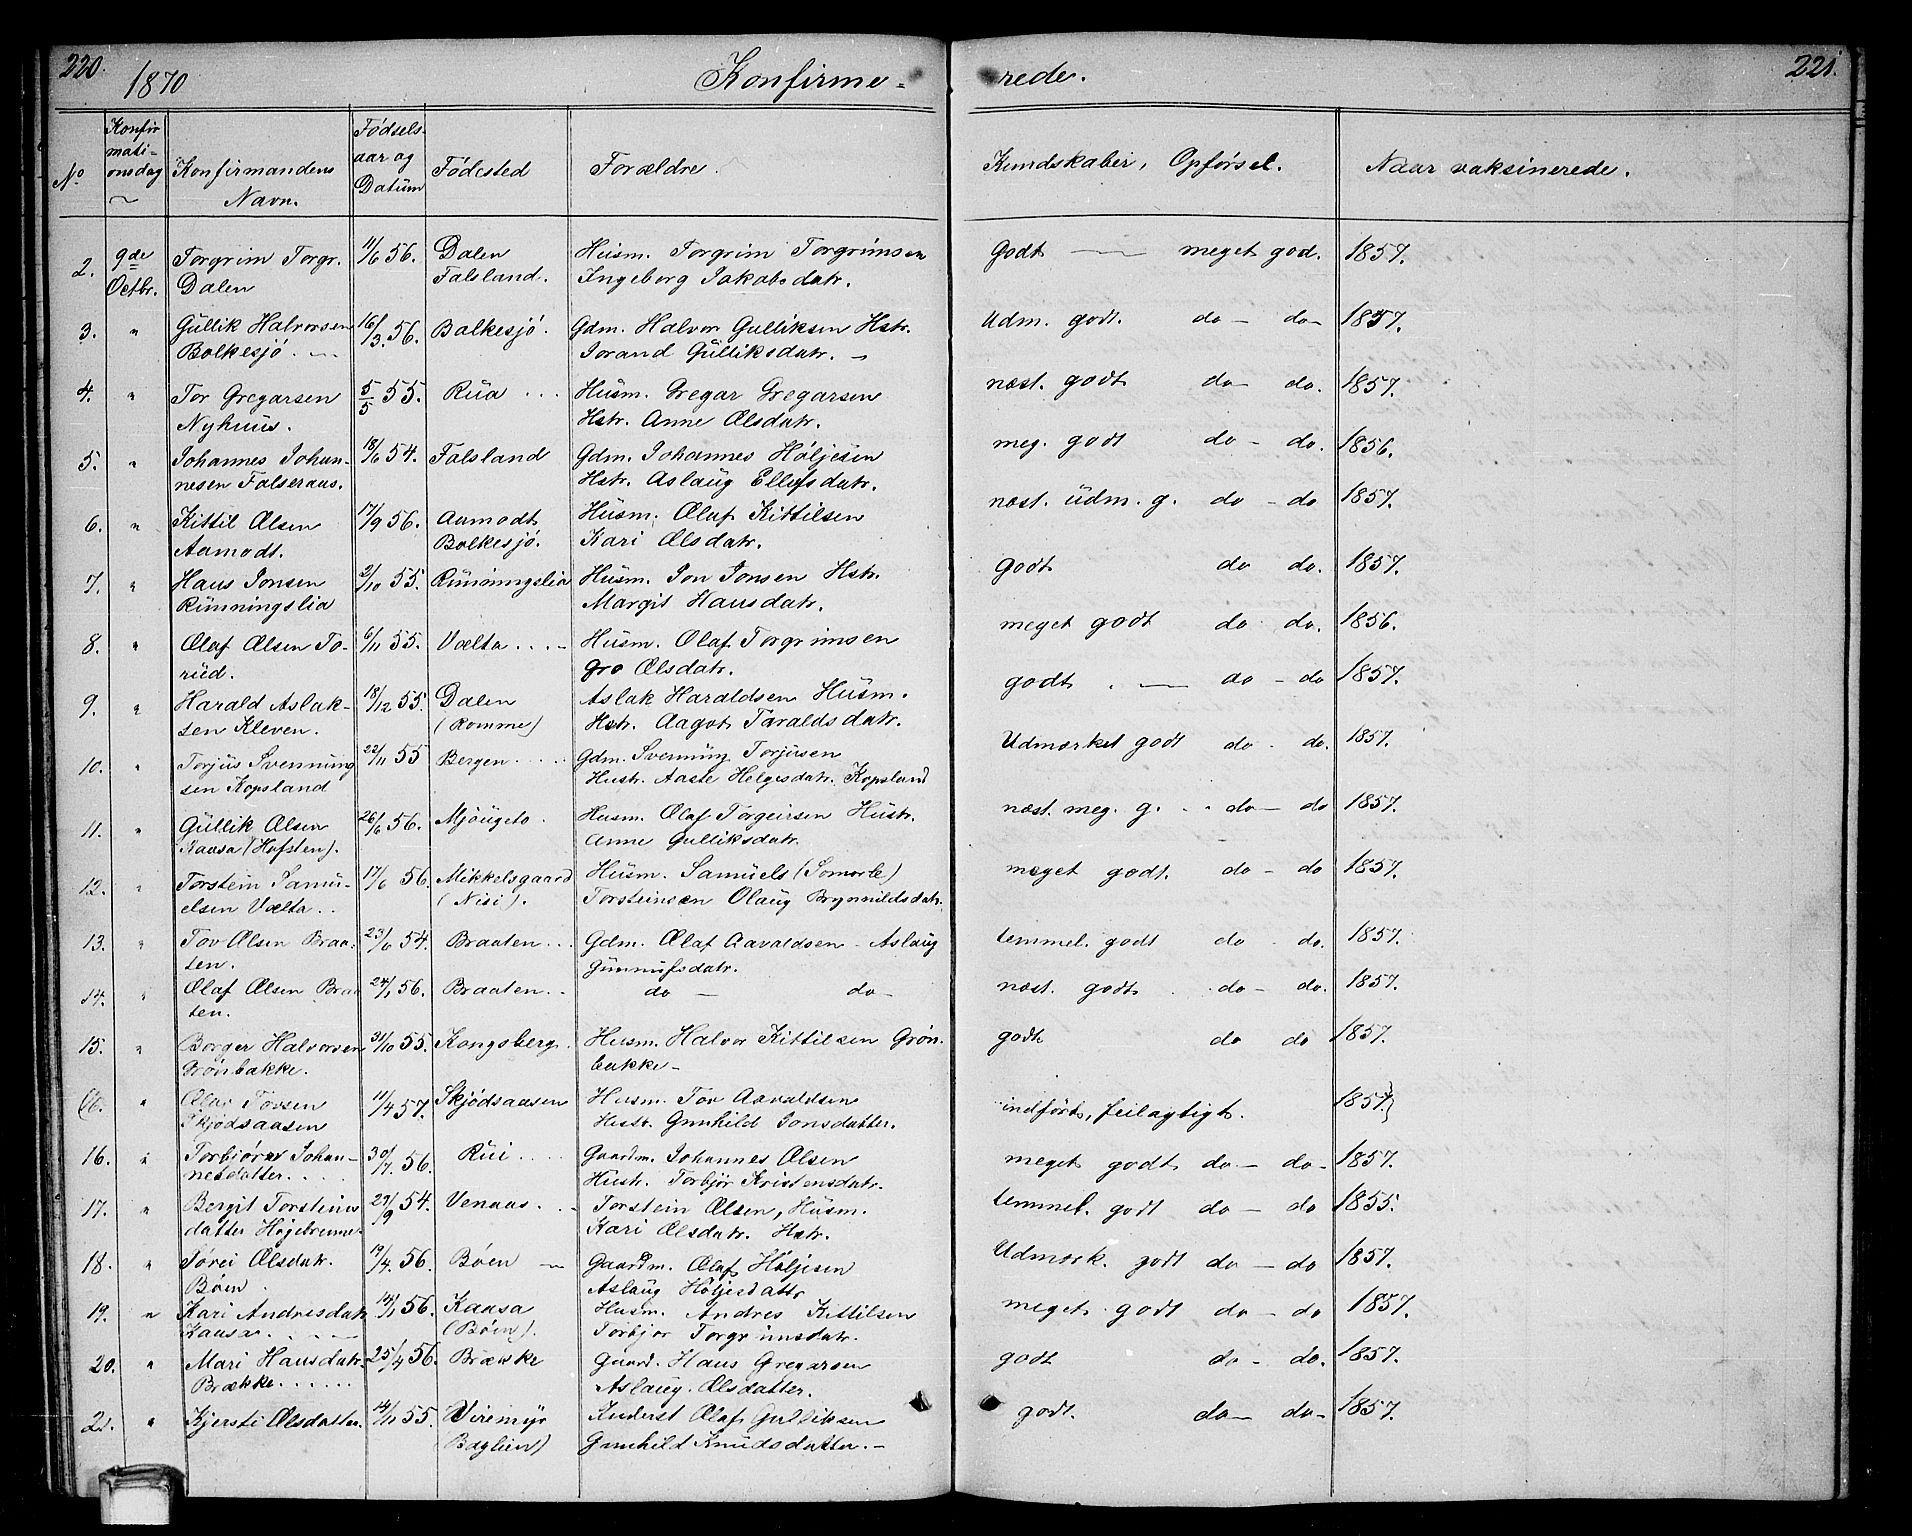 220. 1870 Konfirme-
rede. 221.
No Konfir mati- onsdag Konfirmandens Navn. Fødsels- aar og Datum Fødested Forældre. Kundskaber, Opførsel. Naar vaksinerede.
2. 9de Torgrim Torgr. 11/6 56. Dalen Husm. Torgrim Torgrimsen Godt — meget god. 1857.
Octbr. Dalen Falsland. Ingeborg Jakobsdatr.
3. " Gullik Halvorsen 16/3. 56. Bolkesjö. Gdm. Halvor Gulliksen Hstr. Udm. godt. do - do- 1857.
Bolkesjö. — Jorand Gulliksdatr. -
4. " Tor Gregarsen 5/5 55. Rua . . . Husm. Gregar Gregarsen næst. godt do- do. 1857.
Nyhuus. Hstr. Anne Olsdatr.
5. " Johannes Johan- 18/6 54. Falsland Gdm. Johannes Høljesen meg. godt do - do. 1856.
nesen Falseraas. Hstr. Aslaug Ellefsdatr.
6. " Kittil Olsen 17/9 56. Aamodt Husm. Olaf Kittilsen næst. udm. g. do - do 1857.
Aamodt. Bolkesjö. Kari Olsdatr.
7. " Hans Jonsen 2/10 55. Runningslia Husm. Jon Jonsen Hstr. godt do do. 1857.
Runningslia Margit Hansdatr.
8. " Olaf Olsen To- 6/11 55. Vælta . . . - Husm. Olaf Torgrimsen meget godt do. do. 1856.
rud. Gro Olsdatr.
9. " Harald Aslak- 18/12 55. Dalen Aslak Haraldsen Husm. godt . — do - do 1857.
sen Kleven. (Romme) Hstr. Aagot Taraldsdatr.
10. " Torjus Svenning 22/11 55 Bergen . . . . Gdm. Svenning Torjusen Udmærket godt do . do. 1857.
sen Kopsland Hustr. Aaste Helgesdatr. Kopsland
11. " Gullik Olsen 26/6 56. Mjöugeto . Husm. Olaf Torgeirsen Hustr. næst. meg. g. . . do- do 1857.
Kaasa (Hofsten). Anne Gulliksdatr.
12. " Torstein Samu- 17/6 56. Mikkelsgaard Husm. Samuels (Somorle) meget godt. do - do 1857.
elsen Vælta . . (Nisi). Torsteinsen Olaug Brynnildsdatr.
13. " Tov Olsen Braa- 54. Braaten . . . Gdm. Olaf Aavaldsen - Aslaug temmel. godt do . do. 1857.
ten. Gunnufsdatr.
14. " Olaf Olsen Braa 24/1 56. Braaten. . do — do- næst. godt . . do- do. 1857.
ten.
15. " Borger Halvorsen 31/10 55. Kongsberg. Husm. Halvor Kittilsen Grön- godt do do 1857.
Grönbakke. bakke-
" Olav Tovsen 11/4 57. Skjödsaasen Husm. Tov Aavaldsen indfört, feilagtigt. 1857.}
Skjödsaasen Hustr. Gunhild Jonsdatter.
16. " Torbjörer Johan- 30/7. 56. Rui . . . . Gaardm. Johannes Olsen meget godt do - do- 1857.
nesdatter . . . . Hustr. Torbjör Kristensdatr.
17. " Bergit Torsteins 29/9 54. Venaas . . . Torstein Olsen, Husm. temmel. godt do - do 1855.
datter Høgebrenne- Kari Olsdatr. Hstr.
18. " Sørei Olsdatr. 19/4. 56. Böen — Gaardm. Olaf Höljesen Udmærk. godt do - do 1857.
Böen . Aslaug Höljesdattr
19. " Kari Andresdatr. 14/1 56. Kaasa Husm. Andres Kittilsen meget . godt do - do 1857.
Kaasa . . . . (Böen). Torbjor Torgrimsdatr.
20. " Mari Hansdatr. 25/4 56. Brække Gaard. Hans Gregarsen godt do - do. 1857.
Brække . . . . . . Aslaug. Olsdatter.
21. " Kjersti Olsdatter. 14/11 55. Viremyr Inderst Olaf Gulliksen godt. do- do- 1857.
(Baglien) Gunhild Knudsdatter. -